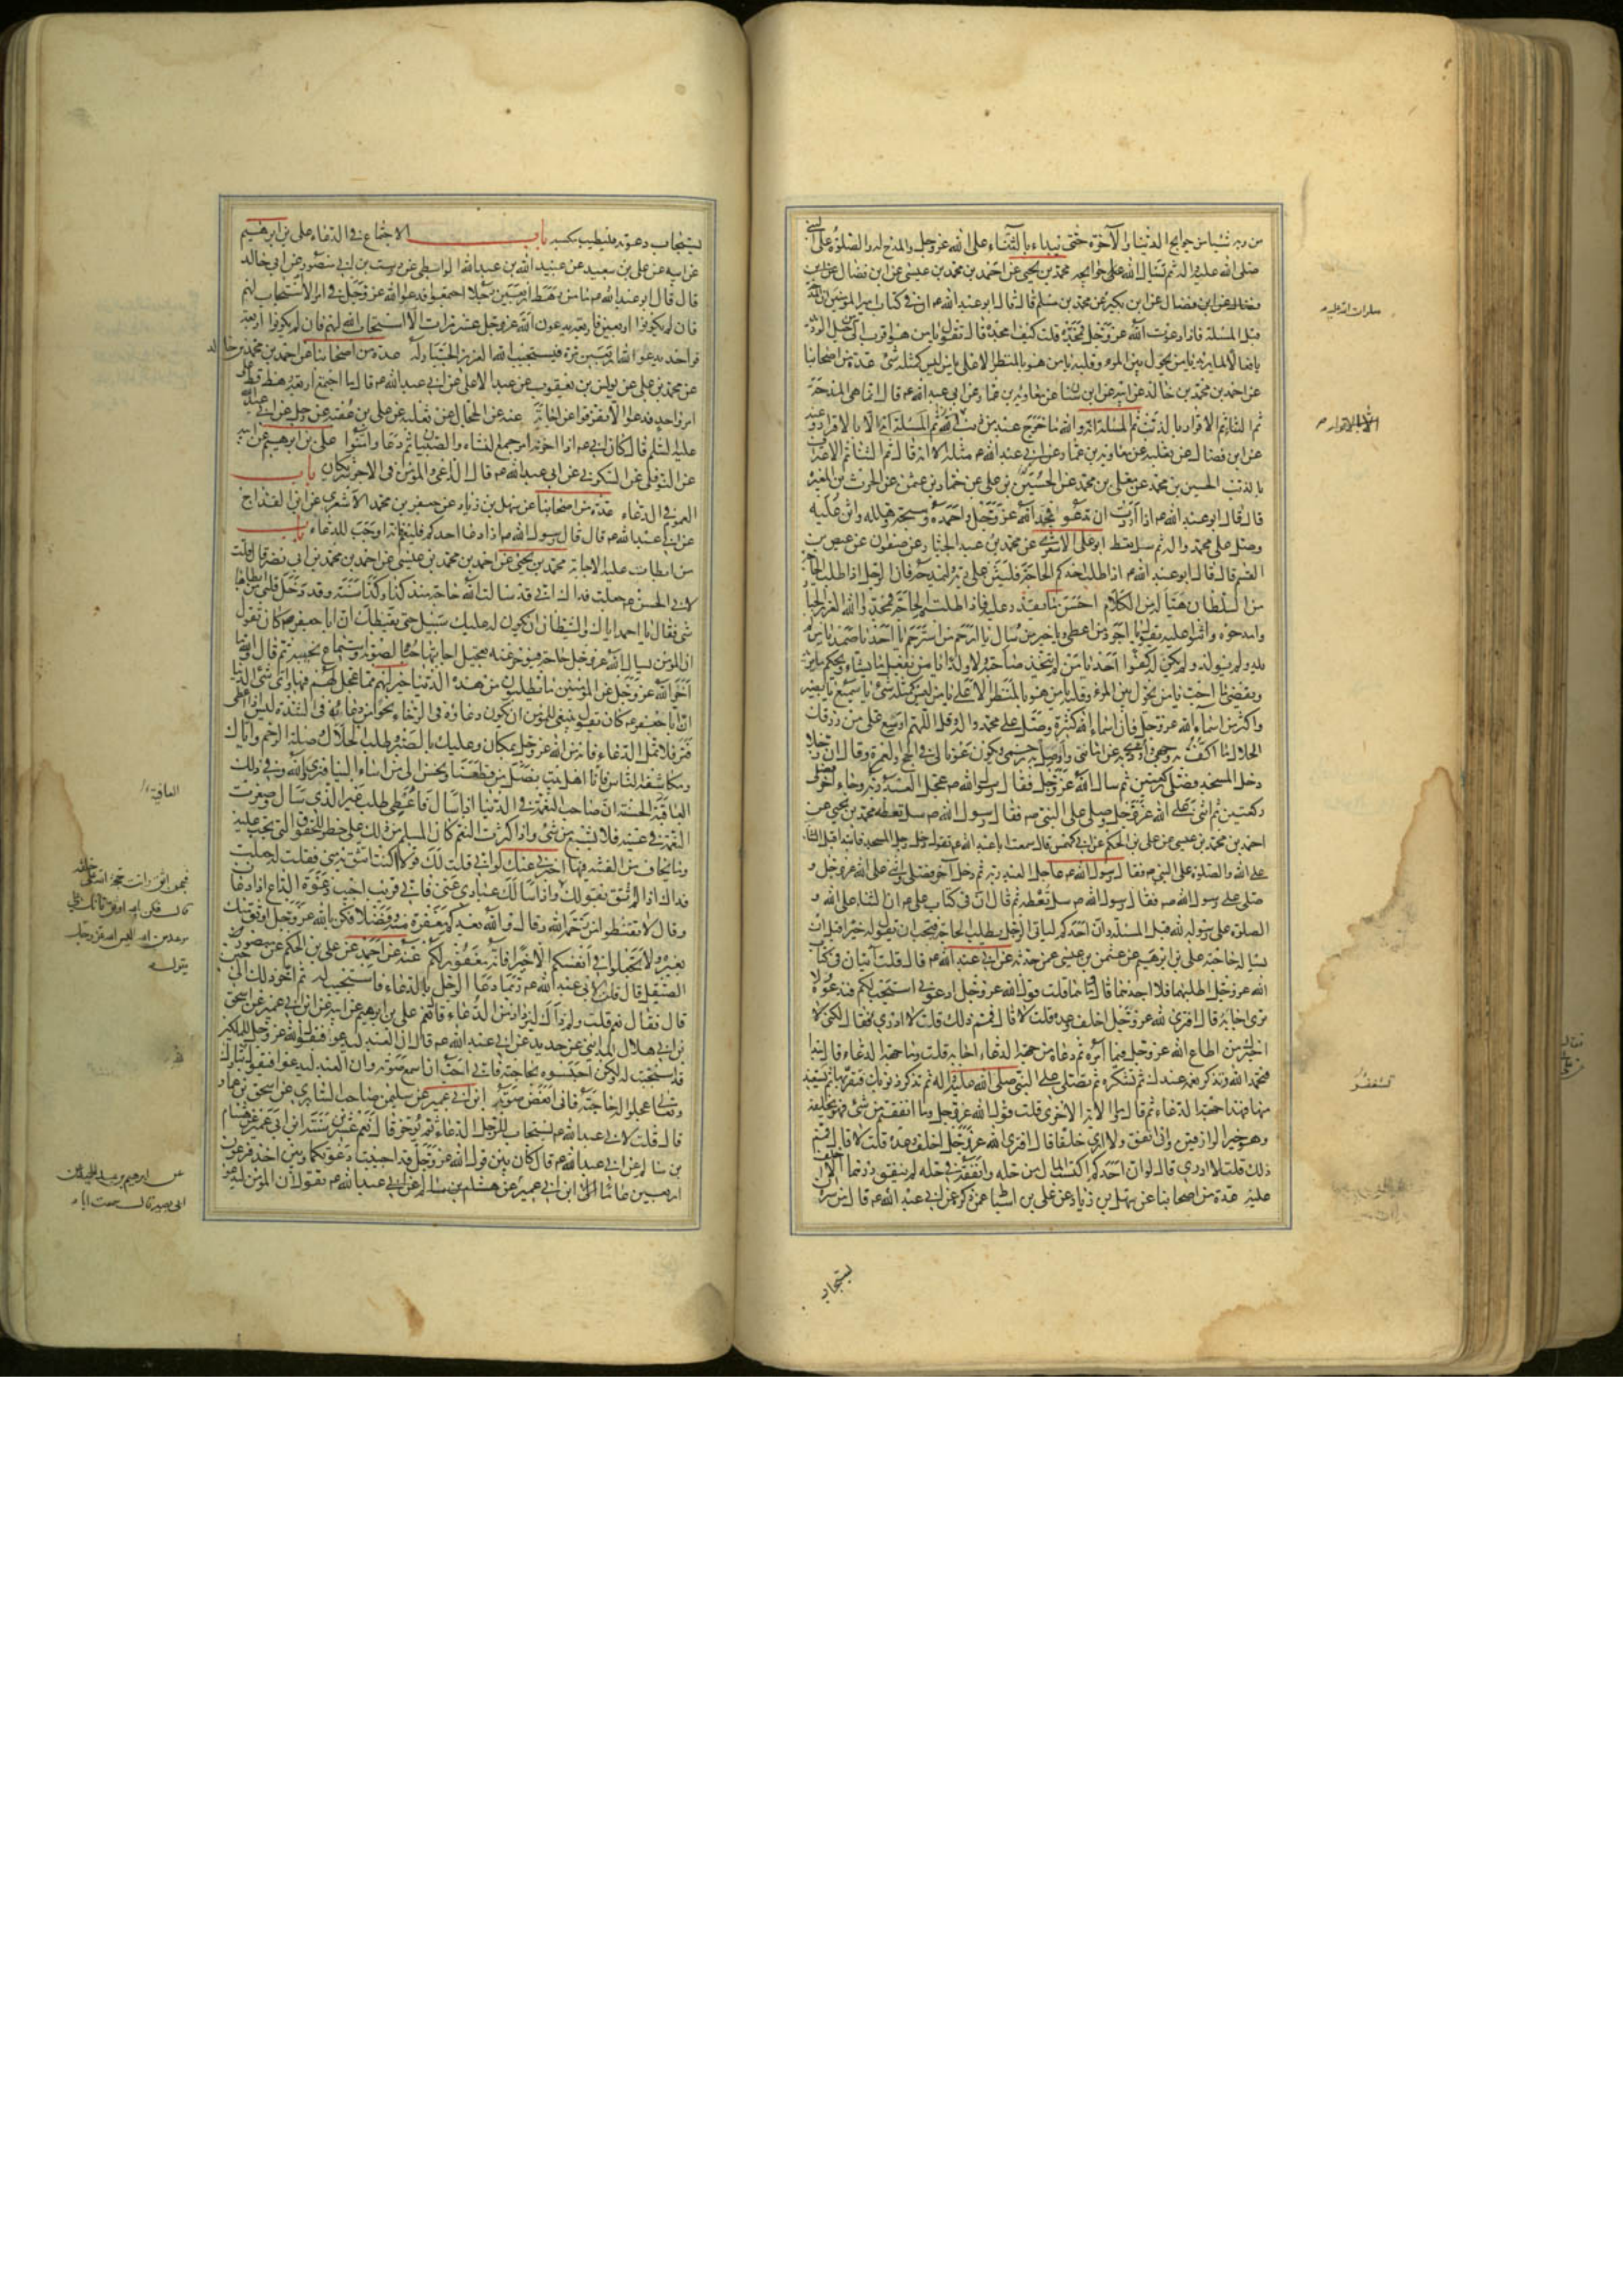 من ربه شيئا من حوايج الدنيا والآخرة حتى يبداء بالثناء على الله عز وجل والمدح له والصلوة على النبي
صلى الله عليه واله ثم يسال الله على حوايجه محمد بن يحيى عن احمد بن محمد بن عيسى عن ابن فضال عن ابن
فضال عن ابن بكير عن محمد بن مسلم قال قال ابو عبد الله ع ان في كتاب امير المؤمنين
قبل المسئلة فاذا دعوت الله عز وجل فمجده قلت كيف امجده قال تقول يا من هو اقرب الى من حبل الوريد
يا فعالا لما يريد يا من يحول بين المرء وقلبه يا من هو بالمنظر الاعلى يا من ليس كمثله شئ عدة من اصحابنا
عن احمد بن محمد بن خالد عن ابيه عن ابن سنان عن معاوية بن عمار عن ابي عبد الله ع قال انما هي المدحة
ثم الثناء ثم الاقرار بالذنب ثم المسئلة انه والله ما خرج عبد من ذنب الا بالاقرار وعنه
عن ابن فضال عن ثعلبة عن معاوية بن عمار عن ابي عبد الله ع مثله الا انه قال ثم الثناء ثم الاعتراف
بالذنب الحسين بن محمد عن معلى بن محمد عن الحسن بن علي عن حماد بن عثمن عن الحرث بن المغيرة
قال قال ابو عبد الله ع اذا اردت ان تدعو فمجد الله عز وجل واحمده وسبحه وهلله واثن عليه
وصل على محمد واله ثم سل تعط ابو علي الاشعري عن محمد بن عبد الجبار عن صفون عن عيص بن
القسم قال قال ابو عبد الله ع اذا طلب احدكم الحاجة فليثن على ربه وليمدحه فان الرجل اذا طلب الحاجة
من السلطان هيأ له من الكلام احسن ما يقدر عليه فاذا طلبتم الحاجة فمجدوا الله العزيز الجبار
وامدحوه واثنوا عليه تقول يا اجود من اعطى ويا خير من سئل يا ارحم من استرحم يا احد يا صمد يا من لم
يلد ولم يولد ولم يكن له كفوا احد يا من لم يتخذ صاحبة ولا ولدا يا من يفعل ما يشاء ويحكم ما يريد
ويقضي ما احب يا من يحول بين المرء وقلبه يا من هو بالمنظر الاعلى يا من ليس كمثله شئ يا سميع يا بصير
واكثر من اسماء الله عز وجل فان اسماء الله كثيرة وصل على محمد واله وقل اللهم اوسع على من رزقك
الحلال ما اكف به وجهي واؤدي به عن امانتي واصل به رحمي ويكون عونا لي في الحج والعمرة وقال ان رجلا
دخل المسجد فصلى ركعتين ثم سال الله عز وجل فقال رسول الله ص عجل العبد ربه وجاء اخر فصلى
ركعتين ثم اثنى على الله عز وجل وصلى على النبي ص فقال رسول الله ص سل تعط محمد بن يحيى عن
احمد بن محمد بن عيسى عن علي بن الحكم عن ابي كهمس قال سمعت ابا عبد الله ع يقول دخل رجل المسجد فابتدا قبل الثناء
على الله والصلوة على النبي ص فقال رسول الله ص عاجل العبد ربه ثم دخل آخر فصلى واثنى على الله عز وجل و
صلى على رسول الله ص فقال رسول الله ص سل تعطه ثم قال ان في كتاب علي ع ان الثناء على الله و
الصلوة على رسوله قبل المسئلة وان احدكم لياتي الرجل يطلب الحاجة فيحب ان يقول له خيرا قبل ان
يساله حاجته علي بن ابرهيم عن عثمن بن عيسى عمن حدثه عن ابي عبد الله ع قال قلت آيتان في كتاب
الله عز وجل اطلبهما فلا اجدهما قال وما هما قلت قول الله عز وجل ادعوني استجب لكم فندعوه ولا
نرى اجابة قال افترى الله عز وجل اخلف وعده قلت لا قال فمم ذلك قلت لا ادري فقال لكني
اخبرك من اطاع الله عز وجل فيما امره ثم دعاه من جهة الدعاء اجابه قلت وما جهة الدعاء قال تبدا
فتحمد الله وتذكر نعمه عندك ثم تشكره ثم تصلي على النبي صلى الله عليه واله ثم تذكر ذنوبك فتقر بها ثم تستعيذ
منها فهذا جهة الدعاء ثم قال وما الآية الاخرى قلت قول الله عز وجل وما انفقتم من شئ فهو يخلفه
وهو خير الرازقين واني انفق ولا ارى خلفا قال افترى الله عز وجل اخلف وعده قلت لا قال فمم
ذلك قلت لا ادري قال لو ان احدكم اكتسب المال من حله وانفقه في حله لم ينفق درهما الا اخلف
عليه عدة من اصحابنا عن سهل بن زياد عن علي بن اسباط عمن ذكره عن ابي عبد الله ع قال من سره ان
يستجاب
يستجاب دعوته فليطيب مكسبه باب الاجتماع في الدعاء علي بن ابرهيم
عن ابيه عن علي بن سعيد عن عبيد الله بن عبد الله الواسطي عن درست بن ابي منصور عن ابي خالد
قال قال ابو عبد الله ع ما من رهط اربعين رجلا اجتمعوا فدعوا الله عز وجل في امر الا استجاب لهم
فان لم يكونوا اربعين فاربعة يدعون الله عز وجل عشر مرات الا استجاب الله لهم فان لم يكونوا اربعة
فواحد يدعوا الله اربعين مرة فيستجيب الله العزيز الجبار له عدة من اصحابنا عن احمد بن محمد بن خالد
عن محمد بن علي عن يونس بن يعقوب عن عبد الاعلى عن ابي عبد الله ع قال ما اجتمع اربعة رهط قط على
امر واحد فدعوا الا تفرقوا عن اجابة عنه عن الحجال عن ثعلبة عن علي بن عقبة عن رجل عن ابي عبد الله
عليه السلم قال كان ابي ع اذا احزنه امر جمع النساء والصبيان ثم دعا وامنوا علي بن ابرهيم عن ابيه
عن النوفلي عن السكوني عن ابي عبد الله ع قال الداعي والمؤمن في الاجر شريكان باب
العموم في الدعاء عدة من اصحابنا عن سهل بن زياد عن جعفر بن محمد الاشعري عن ابن القداح
عن ابي عبد الله ع قال قال رسول الله ص اذا دعا احدكم فليعم فانه اوجب للدعاء باب
من ابطات عليه الاجابة محمد بن يحيى عن احمد بن محمد بن عيسى عن احمد بن محمد بن ابي نصر قال قلت
لابي الحسن ع جعلت فداك اني قد سالت الله حاجة منذ كذا وكذا سنة وقد دخل قلبي من ابطائها
شئ فقال يا احمد اياك والشيطان ان يكون له عليك سبيل حتى يقنطك ان ابا جعفر ع كان يقول
ان المؤمن يسال الله عز وجل حاجة فيؤخر عنه تعجيل اجابتها حبا لصوته واستماع نحيبه ثم قال والله ما
اخر الله عز وجل عن المؤمنين ما يطلبون من هذه الدنيا خير لهم مما عجل لهم فيها واي شئ الدنيا
ان ابا جعفر ع كان يقول ينبغي للمؤمن ان يكون دعاؤه في الرخاء نحوا من دعائه في الشدة ليس اذا اعطى
فتر فلا تمل الدعاء فانه من الله عز وجل بمكان وعليك بالصبر وطلب الحلال وصلة الرحم واياك
ومكاشفة الناس فانا اهل بيت نصل من قطعنا ونحسن الى من اساء الينا فنرى والله في ذلك
العاقبة الحسنة ان صاحب النعمة في الدنيا اذا سال فاعطي طلب غير الذي سال وصغرت
النعمة في عينه فلا يشبع من شئ واذا كثرت النعم كان المسلم من ذلك على خطر للحقوق التي تجب عليه
وما يخاف من الفتنة فيها اخبرني عنك لو اني قلت لك قولا اكنت تثق به مني فقلت له جعلت
فداك اذا لم اثق بقولك واذا سالك عبادي عني فاني قريب اجيب دعوة الداع اذا دعان
وقال لا تقنطوا من رحمة الله وقال والله يعدكم مغفرة منه وفضلا فكن بالله عز وجل اوثق منك
بغيره ولا تجعلوا في انفسكم الا خيرا فانه مغفور لكم عنه عن احمد عن علي بن الحكم عن منصور
الصيقل قال قلت لابي عبد الله ع ربما دعا الرجل بالدعاء فاستجيب له ثم اخر ذلك الى حين
قال فقال نعم قلت ولم ذاك ليزداد من الدعاء قال نعم علي بن ابرهيم عن ابيه عن ابن ابي عمير عن اسحق
بن ابي هلال المدايني عن حديد عن ابي عبد الله ع قال ان العبد ليدعو فيقول الله عز وجل للملكين
قد استجبت له ولكن احبسوه بحاجته فاني احب ان اسمع صوته وان العبد ليدعوا فيقول تبارك
وتعالى عجلوا له حاجته فاني ابغض صوته ابن ابي عمير عن سليمن صاحب السابري عن اسحق بن عمار
قال قلت لابي عبد الله ع يستجاب للرجل الدعاء ثم يؤخر قال نعم عشرين سنة ابن ابي عمير عن هشام
بن سالم عن ابي عبد الله ع قال كان بين قول الله عز وجل قد اجيبت دعوتكما وبين اخذ فرعون
اربعين عاما ابن ابي عمير عن هشام بن سالم عن ابي عبد الله ع يقول ان المؤمن ليدعو